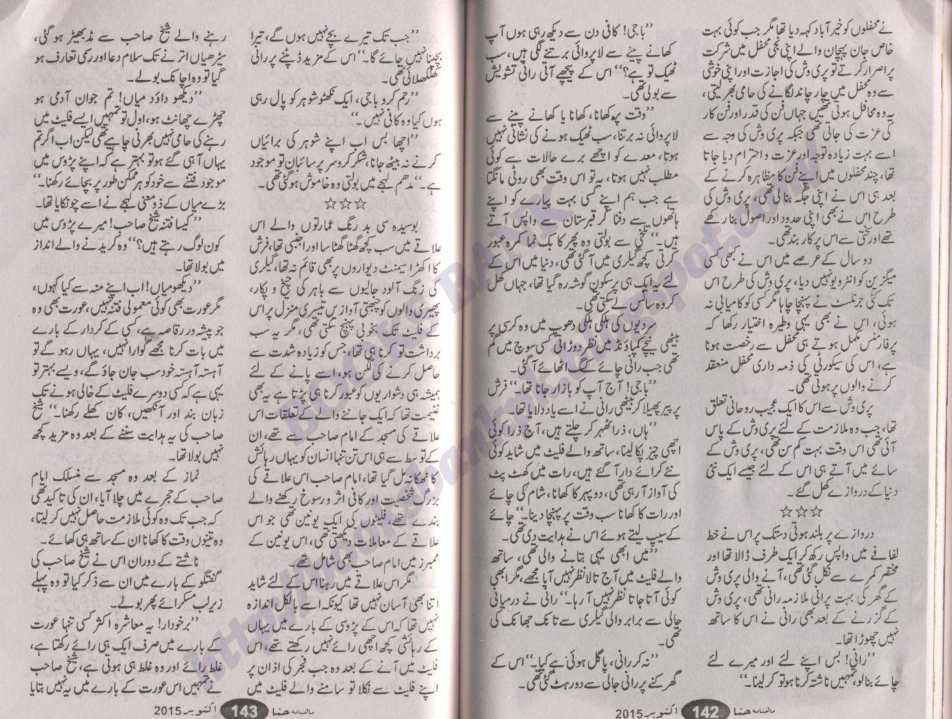 نے محفلوں کو خیر آباد کہہ دیا تھا مگر جب کوئی بہت
خاص جان پہچان والے اپنی نجی محفل میں شرکت
پر اصرار کرتے تو پری وش کی اجازت اور اپنی خوشی
سے وہ محفل میں چار چاند لگانے کی حامی بھر لیتی،
یہ وہ محافل ہوتی تھیں جہاں فن کی قدر اور فن کار
کی عزت کی جاتی تھی جبکہ پری وش کی وجہ سے
اسے بہت زیادہ توجہ اور عزت و احترام دیا جاتا
تھا، چند محفلوں میں اپنے فن کا مظاہرہ کرنے کے
بعد ہی اس نے اپنی جگہ بنا لی تھی، پری وش کی
طرح اس نے بھی اپنی حدود اور اصول بنا رکھے
تھے اور سختی سے اس پر کار بند تھی۔
دو سال کے عرصے میں اس نے بھی کسی
میگزین کو انٹرویو نہیں دیا، پری وش کی طرح اس
تک کئی جرنلسٹ نے پہنچنا چاہا مگر کسی کو کامیابی نہ
ہوئی، اس نے بھی یہی وطیرہ اختیار رکھا کہ
پرفارمنس مکمل ہوتے ہی محفل سے رخصت ہونا
ہے، اس کی سیکورٹی کی ذمہ داری محفل منعقد
کرنے والوں پر ہوتی تھی۔
پری وش سے اس کا ایک عجیب روحانی تعلق
تھا، جب وہ ملازمت کے لئے پری وش کے پاس
آئی تھی اس وقت بہت کم سن تھی، پری وش کے
سائے میں آتے ہی اس کے لئے جیسے ایک نئی
دنیا کے دروازے کھل گئے۔
☆☆☆
دروازے پر بلند ہوتی دستک پر اس نے خط
لفافے میں واپس رکھ کر ایک طرف ڈالا تھا اور
مختصر کمرے سے نکل گئی تھی، آنے والی پری وش
کے گھر کی بہت پرانی ملازمہ رانی تھی، پری وش
کے گزرنے کے بعد بھی رانی نے اس کا ساتھ
نہیں چھوڑا تھا۔
”رانی! بس اپنے لئے اور میرے لئے
چائے بنا لو، تمہیں ناشتہ کرنا ہو تو کر لینا۔“
”باجی! کافی دن سے دیکھ رہی ہوں آپ
کھانے پینے سے لاپروائی برتنے لگی ہیں، سب
ٹھیک تو ہے؟“ اس کے پیچھے آتی رانی تشویش
سے بولی تھی۔
”وقت پہ کھانا، کھانا یا کھانے پینے سے
لاپروائی نہ برتنا، سب ٹھیک ہونے کی نشانی نہیں
ہوتا، معدے کو اچھے برے حالات سے کوئی
مطلب نہیں ہوتا، یہ تو اس وقت بھی روٹی مانگتا
ہے جب ہم اپنے کسی بہت پیارے کو اپنے
ہاتھوں سے دفنا کر قبرستان سے واپس آتے
ہیں۔“ تلخی سے بولتی وہ پھر کابک نما کمرہ عبور
کرتی کچھ گیلری میں آ گئی تھی، دنیا میں اس کے
لئے یہ ایک ہی پرسکون گوشہ رہ گیا تھا، جہاں کھل
کر وہ سانس لے سکتی تھی۔
سردیوں کی ہلکی ہلکی دھوپ میں وہ کرسی پر
بیٹھی نیچے کمپاؤنڈ میں نظر دوڑاتی کسی سوچ میں گم
تھی جب رانی چائے کے مگ اٹھائے آ گئی۔
”باجی! آج آپ کو بازار جانا تھا۔“ فرش
پر پیر پھیلا کر بیٹھی رانی نے اسے یاد دلایا تھا۔
”ہاں، ذرا ٹھہر کر چلتے ہیں، آج ذرا کوئی
اچھی چیز پکا لینا، ساتھ والے فلیٹ میں شاید کوئی
نئے کرائے دار آ گئے ہیں، رات میں کھٹ پٹ
کی آواز آ رہی تھی، دوپہر کا کھانا، شام کی چائے
اور رات کا کھانا سب وقت پر پہنچا دینا۔“ چائے
کے سیپ لیتے ہوئے اس نے ہدایت دی تھی۔
”میں ابھی یہی بتانے والی تھی، ساتھ
والے فلیٹ میں آج تالا نظر نہیں آیا مجھے، مگر ابھی
کوئی آتا جاتا نظر نہیں آ رہا۔“ رانی نے درمیانی
جالی سے برابر والی گیلری سے تانک جھانک کی
تھی۔
”نہ کر رانی، پاگل ہوئی ہے کیا۔“ اس کے
گھرکنے پر رانی جالی سے دور ہٹ گئی تھی۔
ماہنامہ حنا 142 اکتوبر 2015
”جب تک تیرے بچے نہیں ہوں گے، تیرا
بچپنا نہیں جائے گا۔“ اس کے مزید ڈپٹنے پر رانی
کھلکھلائی تھی۔
”رحم کرو باجی، ایک نکھٹو شوہر کو پال رہی
ہوں کیا وہ کافی نہیں۔“
”اچھا بس اب اپنے شوہر کی برائیاں
کرنے نہ بیٹھ جانا، شکر کرو سر پر سائبان تو موجود
ہے۔“ مدھم لہجے میں بولتی وہ خاموش ہو گئی تھی۔
☆☆☆
بوسیدہ سی بد رنگ عمارتوں والے اس
علاقے میں سب کچھ گھٹا گھٹا سا اور اجنبی تھا، فرش
کا اکھڑا سیمنٹ دیواروں پر بھی قائم نہ تھا، گیلری
کی زنگ آلود جالیوں سے باہر کی چیخ و پکار،
پھیری والوں کو چیختی آوازیں تیسری منزل پر اس
کے فلیٹ تک بخوبی پہنچ سکتی تھی، مگر یہ سب
برداشت تو کرنا ہی تھا، جس کو زیادہ شدت سے
حاصل کرنے کی لگن ہو، اسے پانے کے لئے
ہمیشہ ہی دشواریوں کو عبور کرنا ہی پڑتا ہے یہ بھی
غنیمت تھا کہ ایک جاننے والے کے تعلقات اس
علاقے کی مسجد کے امام صاحب سے تھے، ان
کے توسط سے ہی اس تن تنہا انسان کو یہاں رہائش
کا ٹھکانہ مل گیا تھا، امام صاحب اس علاقے کی
بڑی شخصیت اور کافی اثر و رسوخ رکھنے والے
بندے تھے، فلیٹوں کی ایک یونین تھی جو اس
علاقے کے معاملات دیکھتی تھی، اس یونین کے
ممبرز میں امام صاحب بھی شامل تھے۔
مگر اس علاقے میں رہنا اس کے لئے شاید
اتنا بھی آسان نہیں تھا کیونکہ اسے بالکل اندازہ
نہیں تھا کہ اس کے پڑوسی کے بارے میں یہاں
کے رہائشی کچھ اچھی رائے نہیں رکھتے تھے، اس
فلیٹ میں آنے کے بعد وہ جب فجر کی اذان پر
اپنے فلیٹ سے نکلا تو سامنے والے فلیٹ میں
رہنے والے شیخ صاحب سے مڈبھیڑ ہو گئی،
سیڑھیاں اترنے تک سلام دعا اور رسمی تعارف ہو
گیا تو وہ اچانک بولے۔
”دیکھو داؤد میاں! تم جوان آدمی ہو
چھڑے چھانٹ ہو، اول تو تمہیں ایسے فلیٹ میں
رہنے کی حامی نہیں بھرنی چاہیے تھی لیکن اب اگر تم
یہاں آ ہی گئے ہو تو بہتر ہے کہ اپنے پڑوس میں
موجود فتنے سے خود کو ہر ممکن طور پر بچائے رکھنا۔“
بڑے میاں کے ذو معنی لہجے نے اسے چونکایا تھا۔
”کیسا فتنہ شیخ صاحب! میرے پڑوس میں
کون لوگ رہتے ہیں؟“ وہ کریدنے والے انداز
میں بولا تھا۔
”دیکھو میاں! اب اپنے منہ سے کیا کہوں،
مگر عورت بھی کوئی معمولی فتنہ نہیں، عورت بھی وہ
جو پیشہ ور رقاصہ ہے، کسی کے کردار کے بارے
میں بات کرنا مجھے گوارا نہیں، یہاں رہو گے تو
آہستہ آہستہ خود سب جان جاؤ گے، ویسے بہتر تو
یہی ہے کہ کسی دوسرے فلیٹ کے خالی ہونے تک
زبان بند اور آنکھیں، کان کھلے رکھنا۔“ شیخ
صاحب کی یہ ہدایت سننے کے بعد وہ مزید کچھ
نہیں بولا تھا۔
نماز کے بعد وہ مسجد سے منسلک امام
صاحب کے حجرے میں چلا آیا، ان کی تاکید تھی
کہ جب تک وہ کوئی ملازمت حاصل نہیں کر لیتا،
وہ تینوں وقت کا کھانا ان کے ساتھ ہی کھائے۔
ناشتے کے دوران اس نے شیخ صاحب کی
گفتگو کے بارے میں ان سے ذکر کیا تو وہ پہلے
زیر لب مسکرائے پھر بولے۔
”برخوردار! یہ معاشرہ اکثر کسی تنہا عورت
کے بارے میں صرف ایک ہی رائے رکھتا ہے،
غلط رائے اور وہ غلط ہی ہوتی ہے، شیخ صاحب
نے تمہیں اس عورت کے بارے میں یہ نہیں بتایا
ماہنامہ حنا 143 اکتوبر 2015